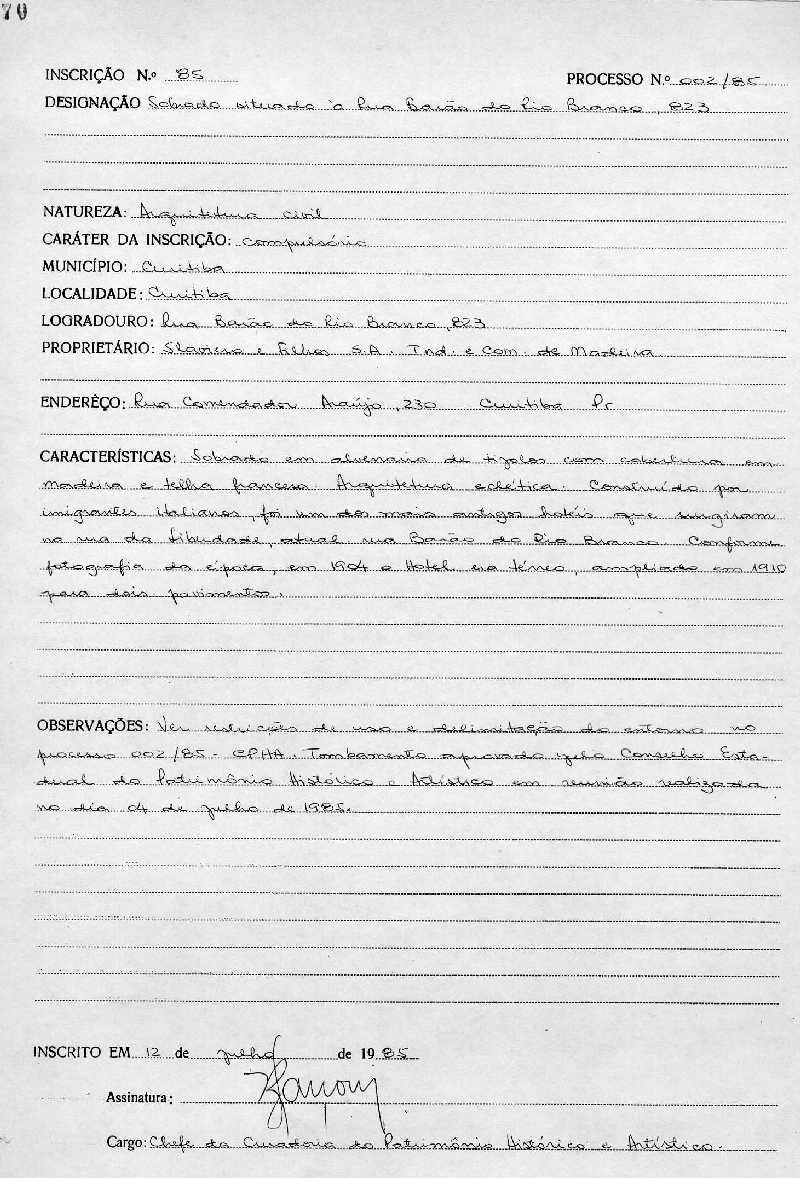 70
INSCRIÇÃO N.º 85 PROCESSO N.º 002/85
DESIGNAÇÃO Sobrado situado à Rua Barão do Rio Branco, 823
NATUREZA: Arquitetura civil
CARÁTER DA INSCRIÇÃO: compulsório
MUNICÍPIO: Curitiba
LOCALIDADE: Curitiba
LOGRADOURO: Rua Barão do Rio Branco, 823
PROPRIETÁRIO: Slaviero e Filhos S.A. Ind. e Com. de Madeira
ENDERÊÇO: Rua Comendador Araújo, 230 Curitiba Pr
CARACTERÍSTICAS: Sobrado em alvenaria de tijolos com cobertura em
madeira e telha francesa. Arquitetura eclética. Construído por
imigrantes italianos, foi um dos mais antigos hotéis que surgiram
na rua da Liberdade, atual rua Barão do Rio Branco. Conforme
fotografia da época, em 1904 o Hotel era térreo, ampliado em 1910
para dois pavimentos.
OBSERVAÇÕES: Ver restrições de uso e delimitação do entorno no
processo 002/85 - CPHA. Tombamento aprovado pelo Conselho Esta-
dual do Patrimônio Histórico e Artístico em reunião realizada
no dia 04 de julho de 1985.
INSCRITO EM 12 de julho de 1985
Assinatura:
Cargo: Chefe da Curadoria do Patrimônio Histórico e Artístico.